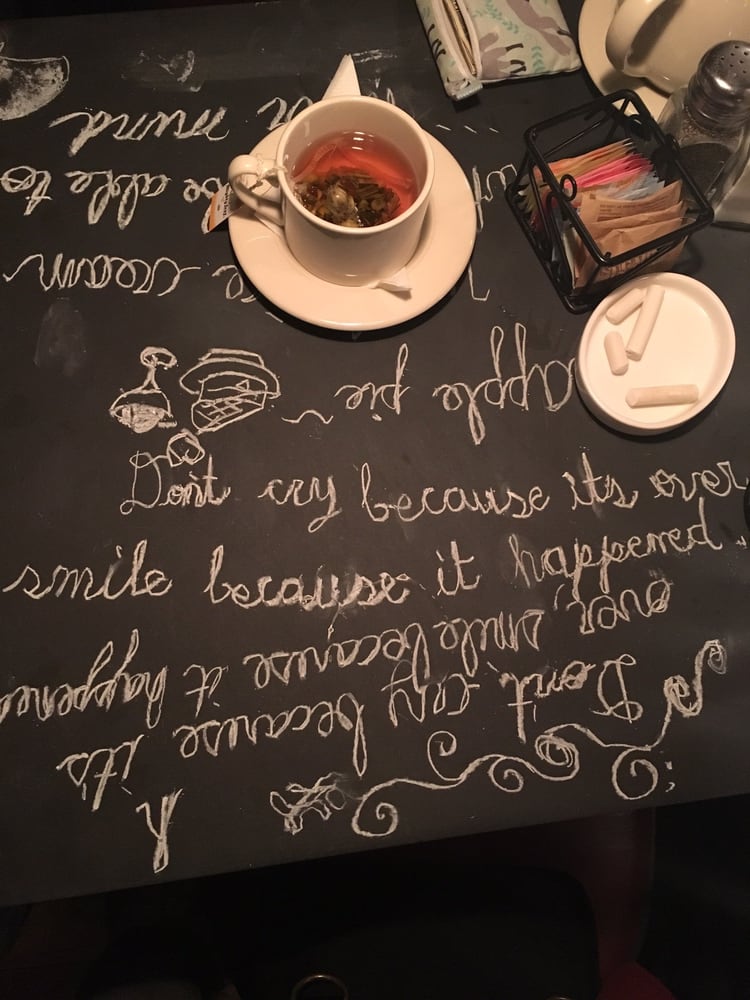 Don't cry because its over
smile because it happened.
Don't cry because it's
over, smile because it happened
apple pie ~
cream
be able to
mind